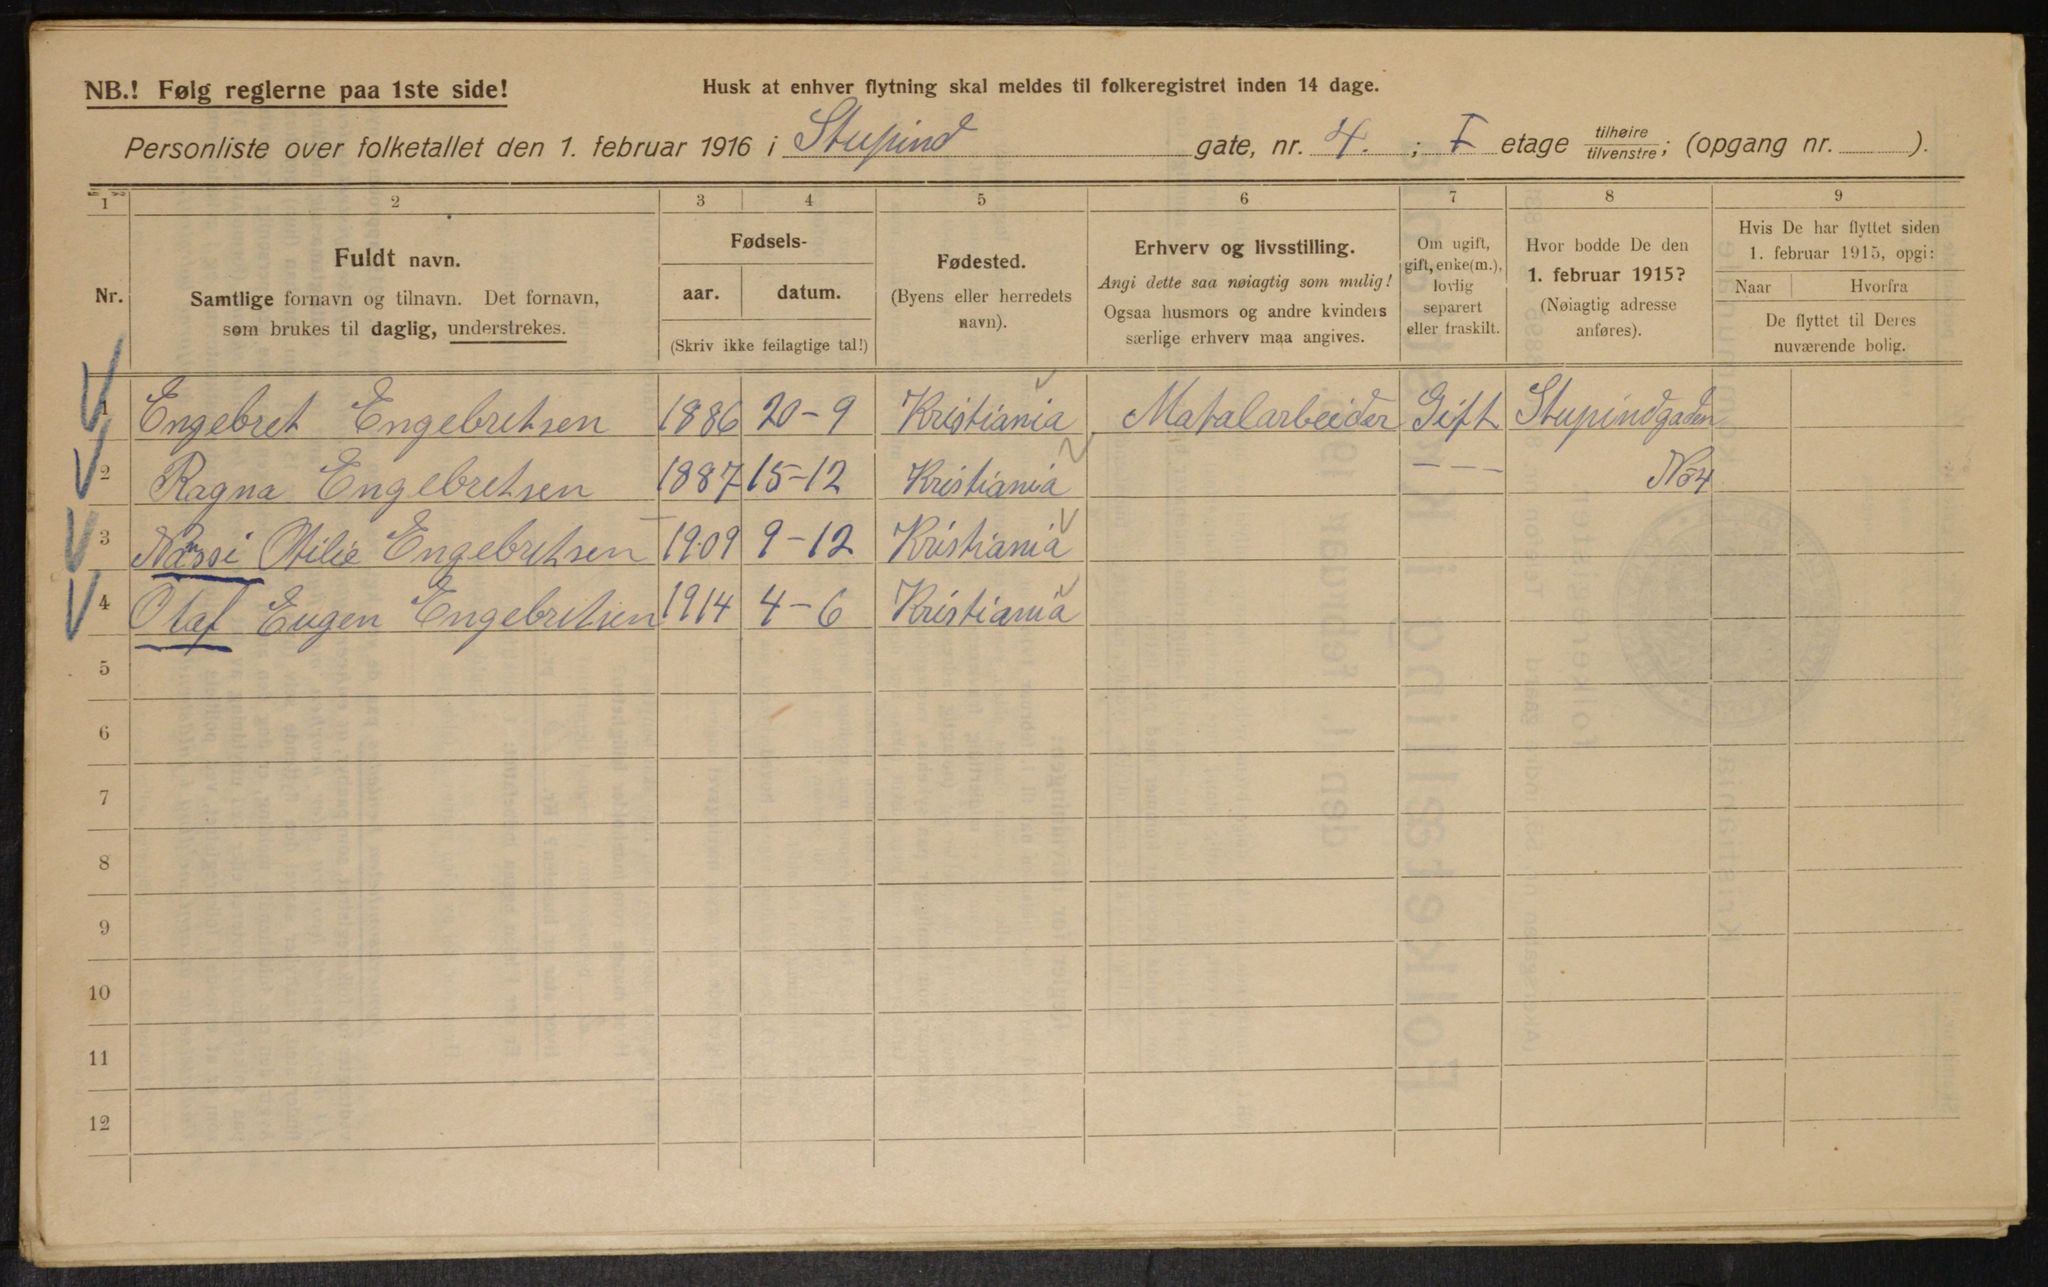 NB.! Følg reglerne paa 1ste side!
Husk at enhver flytning skal meldes til folkeregistret inden 14 dage.
Personliste over folketallet den 1. februar 1916 i Stupind gate, nr. 4. ; I etage tilhøire/tilvenstre; (opgang nr. ).
1 2 3 4 5 6 7 8 9
Nr.
Fuldt navn.
Samtlige fornavn og tilnavn. Det fornavn,
som brukes til daglig, understrekes.
Fødsels-
aar. datum.
(Skriv ikke feilagtige tal!)
Fødested.
(Byens eller herredets
navn).
Erhverv og livsstilling.
Angi dette saa nøiagtig som mulig!
Ogsaa husmors og andre kvinders
særlige erhverv maa angives.
Om ugift,
gift, enke(m.),
lovlig
separert
eller fraskilt.
Hvor bodde De den
1. februar 1915?
(Nøiagtig adresse
anføres).
Hvis De har flyttet siden
1. februar 1915, opgi:
Naar Hvorfra
De flyttet til Deres
nuværende bolig.
1 Engebret Engebretsen 1886 20-9 Kristiania Matalarbeider Gift Stupindgaden
2 Ragna Engebretsen 1887 15-12 Kristiania - - - No 4
3 Otilie Engebretsen 1909 9-12 Kristiania
4 Olaf Eugen Engebretsen 1914 4-6 Kristiania
5
6
7
8
9
10
11
12